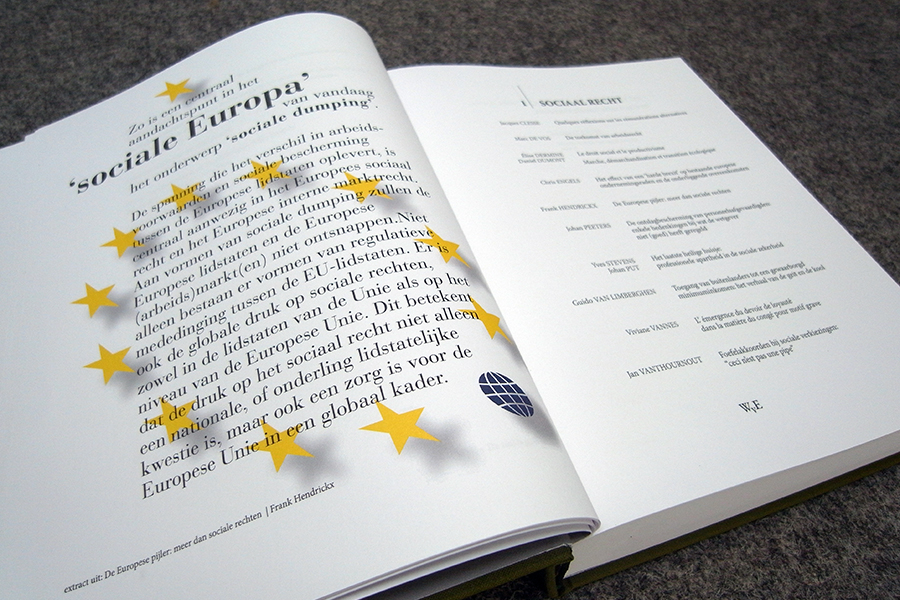 Zo is een centraal
aandachtspunt in het
‘sociale Europa’ van vandaag
het onderwerp ‘sociale dumping’.
De spanning die het verschil in arbeids-
voorwaarden en sociale bescherming
tussen de Europese lidstaten oplevert, is
centraal aanwezig in het Europees sociaal
recht en het Europese interne marktrecht.
Aan vormen van sociale dumping zullen de
Europese lidstaten en de Europese
(arbeids)markt(en) niet ontsnappen. Niet
alleen bestaan er vormen van regulatieve
mededinging tussen de EU-lidstaten. Er is
ook de globale druk op sociale rechten,
zowel in de lidstaten van de Unie als op het
niveau van de Europese Unie. Dit betekent
dat de druk op het sociaal recht niet alleen
een nationale, of onderling lidstatelijke
kwestie is, maar ook een zorg is voor de
Europese Unie in een globaal kader.
extract uit: De Europese pijler: meer dan sociale rechten | Frank Hendrickx
1 SOCIAAL RECHT
Jacques CLESSE Quelques réflexions sur les
Marc DE VOS De toekomst van arbeidsrecht
Élise DERMINE Le droit social et le productivisme
Daniel DUMONT Marche, démarchandisation et transition écologique
Chris ENGELS Het effect van een op bestaande europese
ondernemingsraden en de onderliggende overeenkomsten
Frank HENDRICKX De Europese pijler: meer dan sociale rechten
Johan PEETERS De ontslagbescherming van personeelsafgevaardigden:
enkele bedenkingen bij wat de wetgever
niet (goed) heeft geregeld
Yves STEVENS Het laatste heilige huisje:
Johan PUT professionele apartheid in de sociale zekerheid
Guido VAN LIMBERGHEN Toegang van buitenlanders tot een gewaarborgd
minimuminkomen: het verhaal van de geit en de kool
Viviane VANNES L’émergence du devoir de loyauté
dans la matière du congé pour motif grave
Jan VANTHOURNOUT Foefelakkoorden bij sociale verkiezingen:
“ceci n'est pas une pipe”